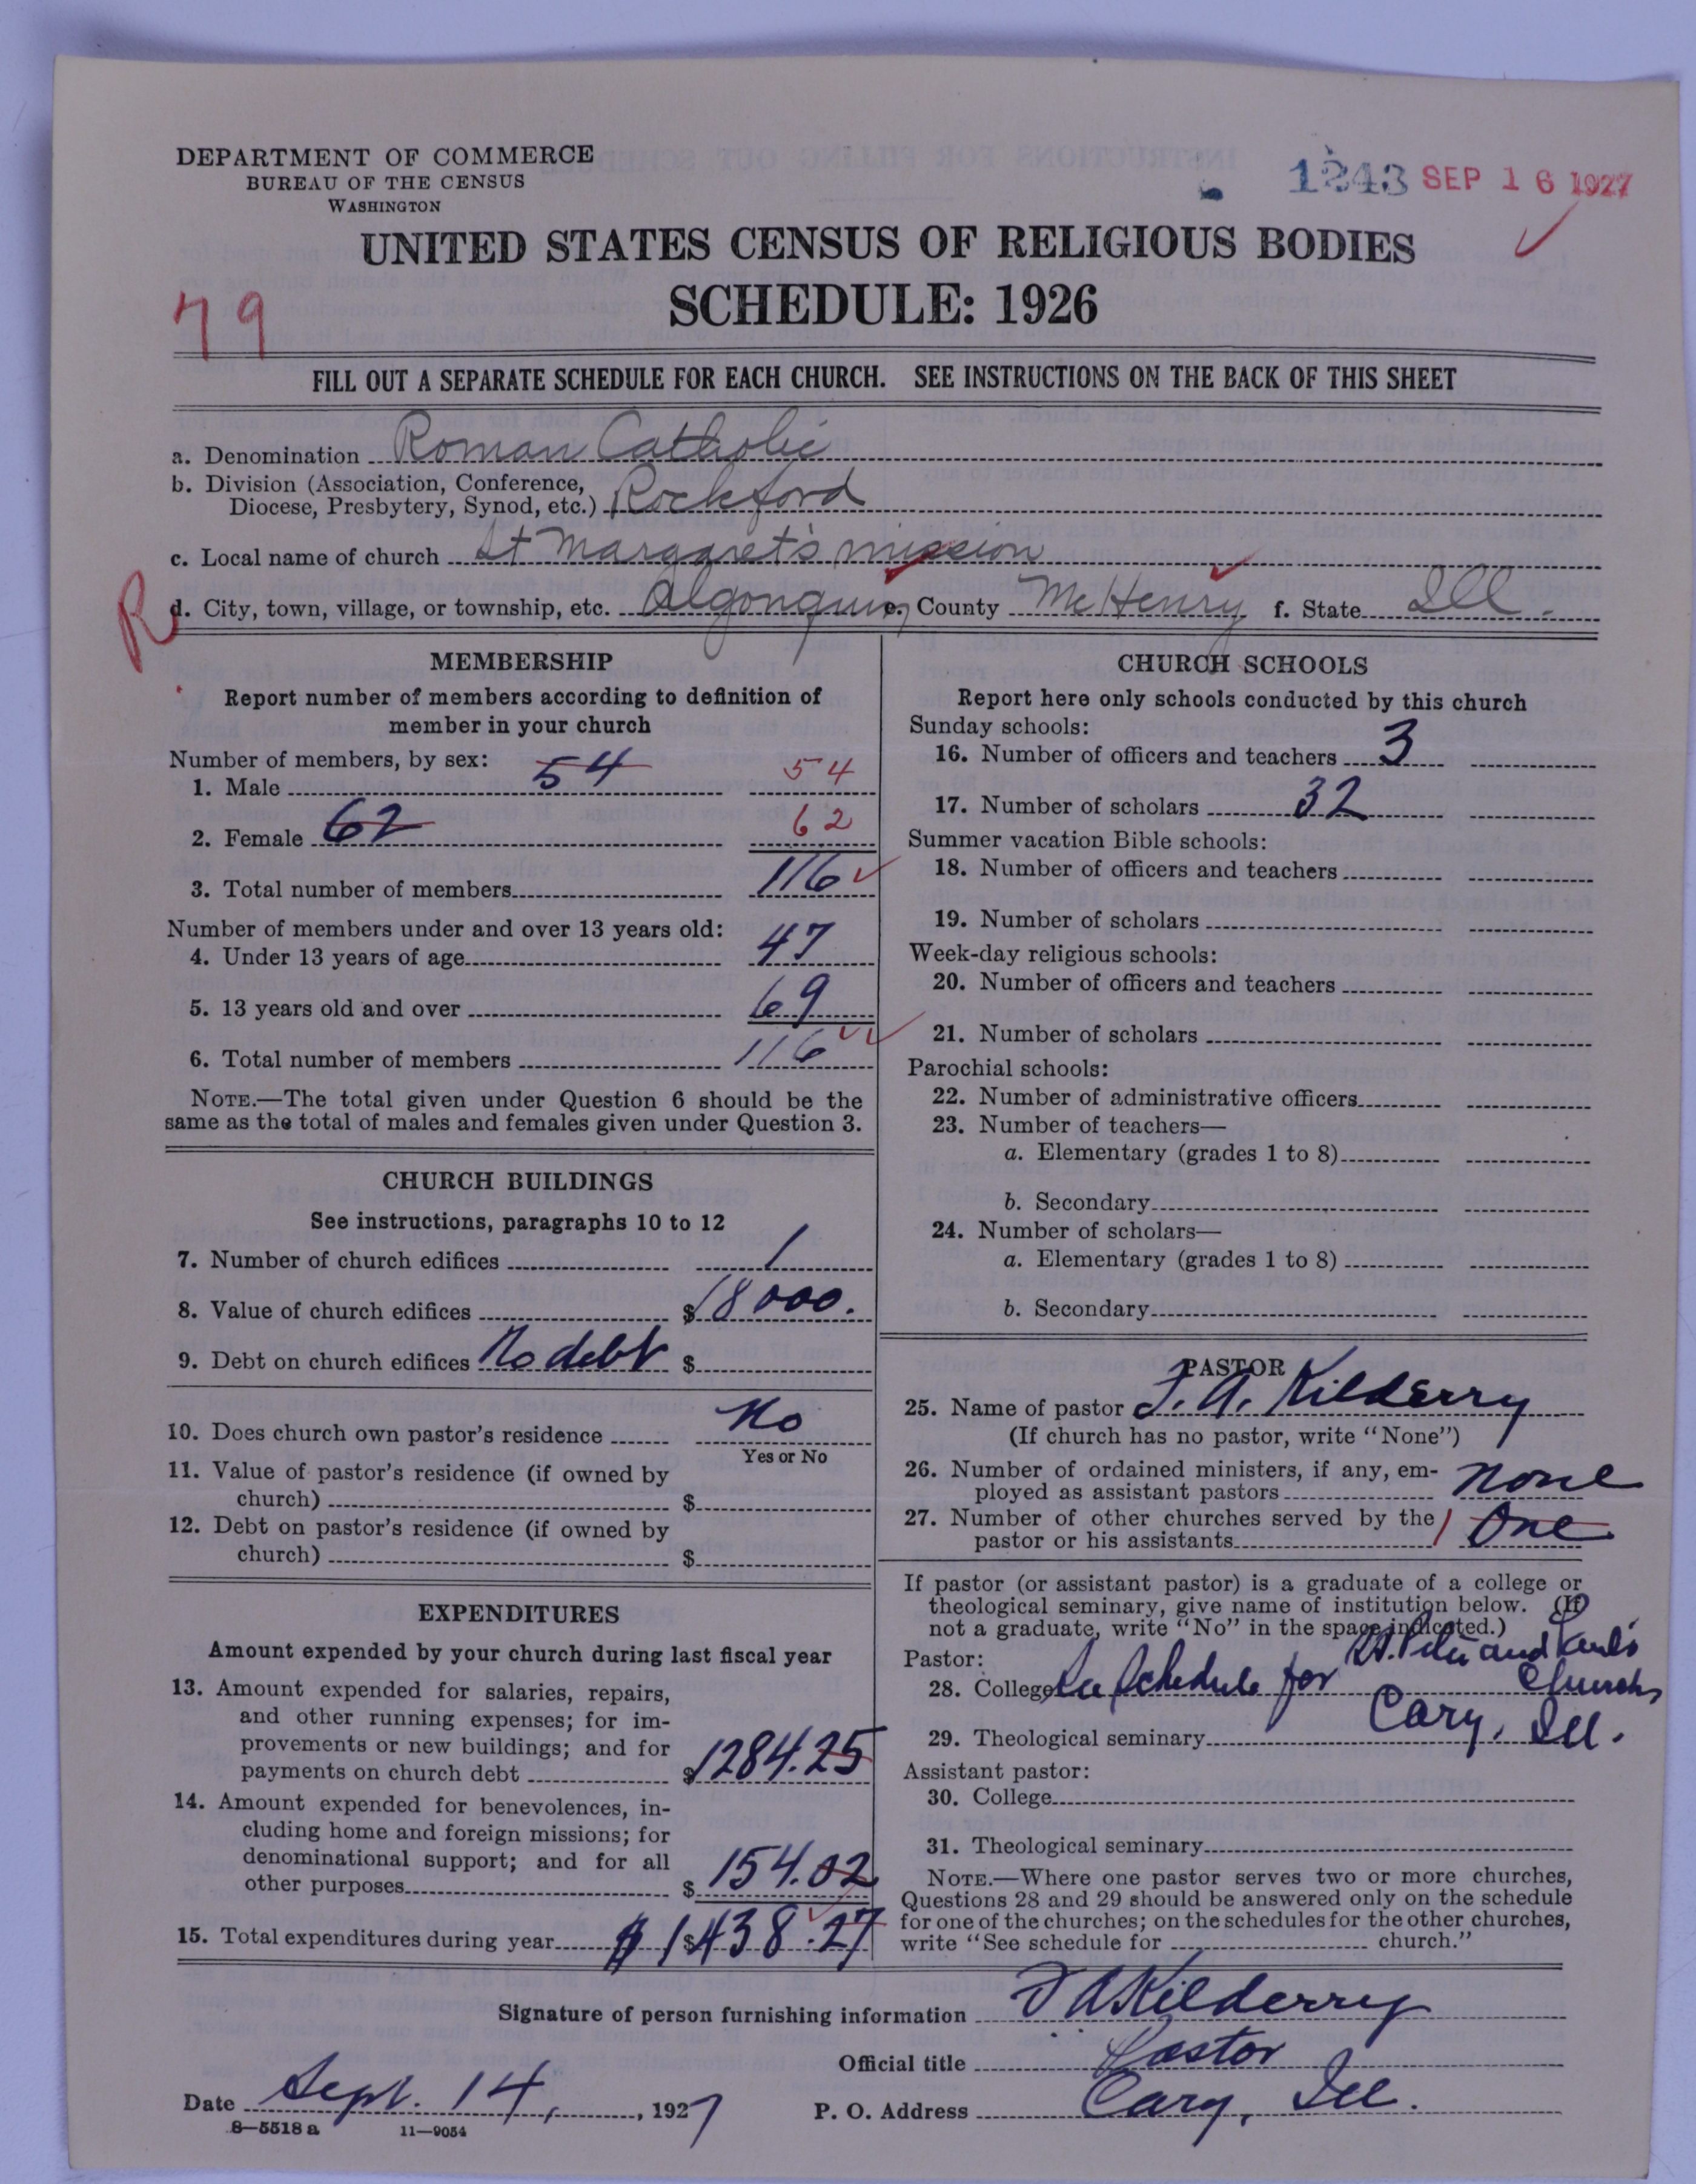 DEPARTMENT OF COMMERCE
BUREAU OF THE CENSUS
WASHINGTON
1243 SEP 16 1927
UNITED STATES CENSUS OF RELIGIOUS BODIES
SCHEDULE: 1926
79
FILL OUT A SEPARATE SCHEDULE FOR EACH CHURCH. SEE INSTRUCTIONS ON THE BACK OF THIS SHEET
a. Denomination Roman Catholic
b. Division (Association, Conference,
Diocese, Presbytery, Synod, etc.) Rockford
c. Local name of church St Margaret's mission
R d. City, town, village, or township, etc. Algonquin e. County McHenry f. State Ill.
MEMBERSHIP
Report number of members according to definition of
member in your church
Number of members, by sex:
1. Male 54 54
2. Female 62 62
3. Total number of members 116
Number of members under and over 13 years old:
4. Under 13 years of age 47
5. 13 years old and over 69
6. Total number of members 116
NOTE.—The total given under Question 6 should be the
same as the total of males and females given under Question 3.
CHURCH BUILDINGS
See instructions, paragraphs 10 to 12
7. Number of church edifices 1
8. Value of church edifices $18000.
9. Debt on church edifices No debt $
10. Does church own pastor's residence No
Yes or No
11. Value of pastor's residence (if owned by
church) $
12. Debt on pastor's residence (if owned by
church) $
EXPENDITURES
Amount expended by your church during last fiscal year
13. Amount expended for salaries, repairs,
and other running expenses; for im-
provements or new buildings; and for
payments on church debt $1284.25
14. Amount expended for benevolences, in-
cluding home and foreign missions; for
denominational support; and for all
other purposes $154.02
15. Total expenditures during year $ 1$438.27
CHURCH SCHOOLS
Report here only schools conducted by this church
Sunday schools:
16. Number of officers and teachers 3
17. Number of scholars 32
Summer vacation Bible schools:
18. Number of officers and teachers
19. Number of scholars
Week-day religious schools:
20. Number of officers and teachers
21. Number of scholars
Parochial schools:
22. Number of administrative officers
23. Number of teachers—
a. Elementary (grades 1 to 8)
b. Secondary
24. Number of scholars—
a. Elementary (grades 1 to 8)
b. Secondary
PASTOR
25. Name of pastor F. A. Kilderry
(If church has no pastor, write "None")
26. Number of ordained ministers, if any, em-
ployed as assistant pastors none
27. Number of other churches served by the
pastor or his assistants 1 One
If pastor (or assistant pastor) is a graduate of a college or
theological seminary, give name of institution below. (If
not a graduate, write "No" in the space indicated.)
Pastor: St. Peter and Paul's
28. College See Schedule for Church,
29. Theological seminary Cary, Ill.
Assistant pastor:
30. College
31. Theological seminary
NOTE.—Where one pastor serves two or more churches,
Questions 28 and 29 should be answered only on the schedule
for one of the churches; on the schedules for the other churches,
write "See schedule for church."
Signature of person furnishing information F A Kilderry
Official title Pastor
Date Sept. 14, 1927 P. O. Address Cary, Ill.
8—5518 a 11—9054